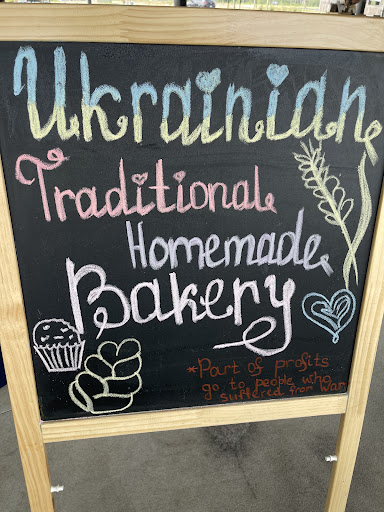 Ukrainian
Traditional
Homemade
Bakery
*Part of profits
go to people who
suffered from war